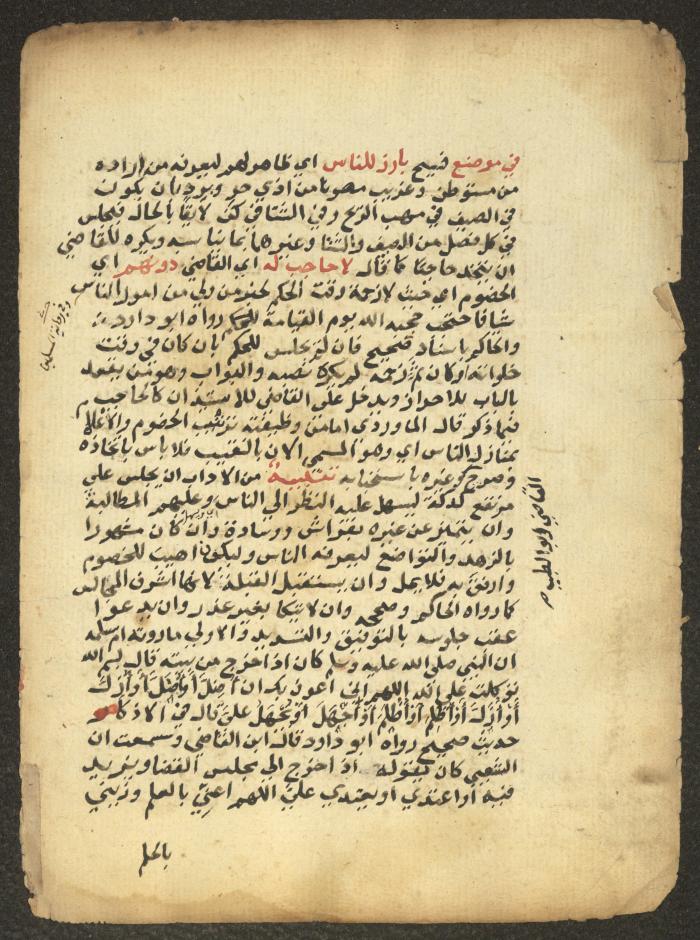 في موضع فسيح بارز للناس اي ظاهر لهم ليعرفه من اراده
من مستوطن وغريب مصونا من اذي حر وبرد بان يكون
في الصيف في مهب الريح وفي الشتا في كن لايقا بالحال فيجلس
في كل فصل من الصيف والشتا وغيرهما بما يناسبه ويكره للقاضي
ان يتخذ حاجبا كما قال لا حاجب له اي القاضي دونهم اي
الخصوم اي حيث لا زحمة وقت الحكم لخبر من ولي من امور الناس
شيا فاحتجب حجبه الله يوم القيامة رواه ابو داود
والحاكم باسناد صحيح فان لم يجلس للحكم بان كان في وقت
خلواته او كان ثم زحمة لم يكره نصبه والبواب وهو من يقعد
بالباب للاحراز ويدخل علي القاضي للاستيذان كالحاجب
فيما ذكر قال الماوردي اما من وظيفته ترتيب الخصوم والاعلام
بمنازل الناس اي وهو المسمي الان بالنقيب فلا باس باتخاذه
وصرح غيره باستحبابه تنبيه من الاداب ان يجلس علي
مرتفع كدكة ليسهل عليه النظر الي الناس وعليهم المطالبة
وان يتميز عن غيره بفراش ووسادة وان كان مشهورا
بالزهد والتواضع ليعرفه الناس وليكون اهيب للخصوم
وارفق به فلا يمل وان يستقبل القبلة لانها اشرف المجالس
كما رواه الحاكم وصححه وان لا يتكا بغير عذر وان يدعوا
عقب جلوسه بالتوفيق والتسديد والاولي ما روته ام سلمة
ان النبي صلي الله عليه وسلم كان اذا خرج من بيته قال بسم الله
توكلت علي الله اللهم اني اعوذ بك ان أضل أو أضل أو أزل
أو أزل أو أظلم أو أظلم أو أجهل أو يجهل علي قال في الاذكار
حديث صحيح رواه ابو داود قال ابن القاضي وسمعت ان
الشعبي كان يقوله اذا خرج الي مجلس القضا ويزيد
فيه او اعتدي او يعتدي علي اللهم اعني بالعلم وزيني
بالحلم
القاضي ابو الطيب